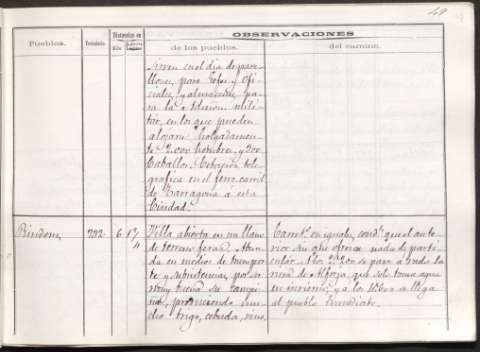 49
OBSERVACIONES
Pueblos.
Vecindario.
Distancias en
Kils.
Leguas
de los pueblos.
del camino.
sirven en el dia de pave-
llones para Gefes y Ofi-
ciales, y almacenes pa-
ra la Admon. mili-
tar, en los que pueden
alojarse holgadamen-
te 2.000 hombres y 300
Caballos. Estación tele-
grafica en el ferro carril
de Tarragona á esta
Ciudad.
Riudoms,
792
6
1 1/4
Villa abierta en un llano
de terreno feraz. Abun-
da en medios de transpor-
te y subsistencias, por ser
muy buena su campi-
ña, produciendo mu-
cho trigo, cebada, vino,
Carret. en iguales cond. que el ante-
rior sin que ofrezca nada de parti-
cular. A los se pasa á vado la
riera de Alforja que solo toma agua
en invierno, y a los se llega
al pueblo inmediato.